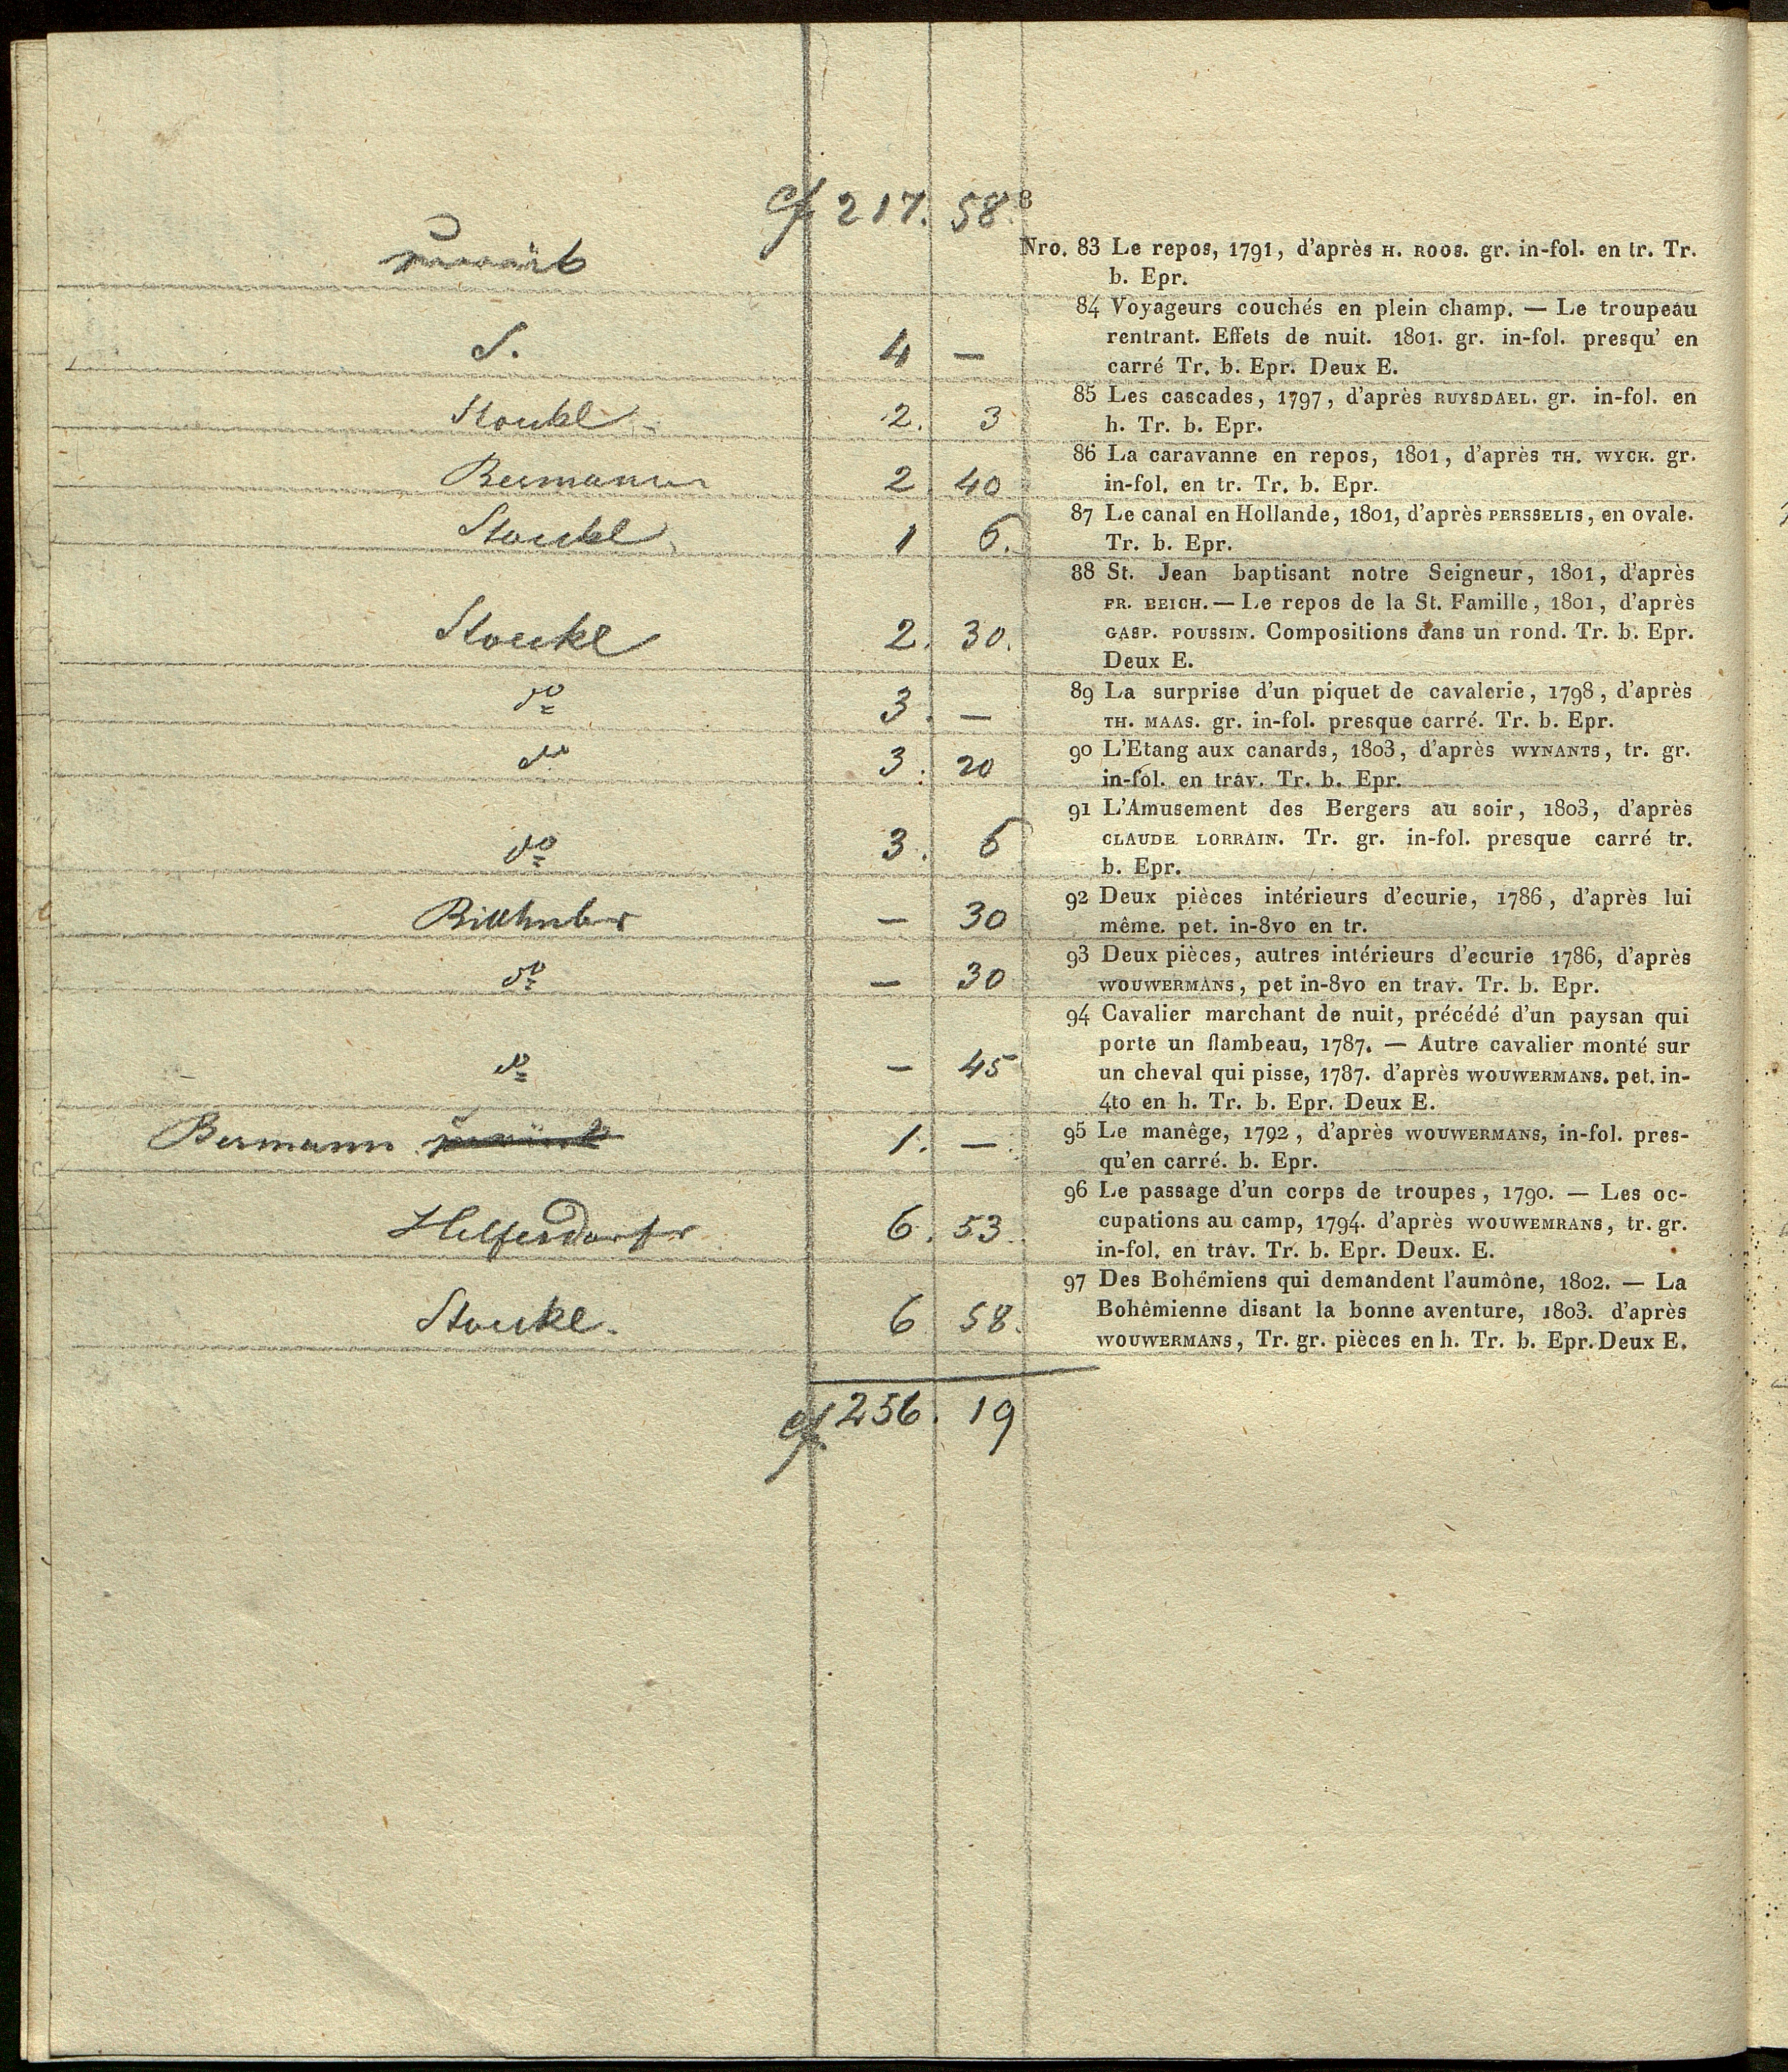 217. 58. 8
Nro. 83 Le repos, 1791, d'après H. ROOS. gr. in-fol. en tr. Tr.
b. Epr.
S. 4 —
84 Voyageurs couchés en plein champ. — Le troupeau
rentrant. Effets de nuit. 1801. gr. in-fol. presqu' en
carré Tr. b. Epr. Deux E.
Stoukel 2. 3
85 Les cascades, 1797, d'après RUYSDAEL. gr. in-fol. en
h. Tr. b. Epr.
Bermann 2. 40
86 La caravanne en repos, 1801, d'après TH. WYCK. gr.
in-fol. en tr. Tr. b. Epr.
Stoukel 1 6.
87 Le canal en Hollande, 1801, d'après PERSSELIS, en ovale.
Tr. b. Epr.
Stoukel 2. 30.
88 St. Jean baptisant notre Seigneur, 1801, d'après
FR. BEICH. — Le repos de la St. Famille, 1801, d'après
GASP. POUSSIN. Compositions dans un rond. Tr. b. Epr.
Deux E.
do 3. —
89 La surprise d'un piquet de cavalerie, 1798, d'après
TH. MAAS. gr. in-fol. presque carré. Tr. b. Epr.
do 3. 20
90 L'Etang aux canards, 1803, d'après WYNANTS, tr. gr.
in-fol. en trav. Tr. b. Epr.
do 3. 6
91 L'Amusement des Bergers au soir, 1803, d'après
CLAUDE LORRAIN. Tr. gr. in-fol. presque carré tr.
b. Epr.
— 30
92 Deux pièces intérieurs d'ecurie, 1786, d'après lui
même. pet. in-8vo en tr.
do — 30
93 Deux pièces, autres intérieurs d'ecurie 1786, d'après
WOUWERMANS, pet in-8vo en trav. Tr. b. Epr.
do — 45
94 Cavalier marchant de nuit, précédé d'un paysan qui
porte un flambeau, 1787. — Autre cavalier monté sur
un cheval qui pisse, 1787. d'après WOUWERMANS. pet. in-
4to en h. Tr. b. Epr. Deux E.
Bermann 1. —
95 Le manêge, 1792, d'après WOUWERMANS, in-fol. pres-
qu'en carré. b. Epr.
Helfersdorfer 6. 53.
96 Le passage d'un corps de troupes, 1790. — Les oc-
cupations au camp, 1794. d'après WOUWEMRANS, tr. gr.
in-fol. en trav. Tr. b. Epr. Deux. E.
Stoukel. 6 58.
97 Des Bohêmiens qui demandent l'aumône, 1802. — La
Bohêmienne disant la bonne aventure, 1803. d'après
WOUWERMANS, Tr. gr. pièces en h. Tr. b. Epr. Deux E.
256. 19